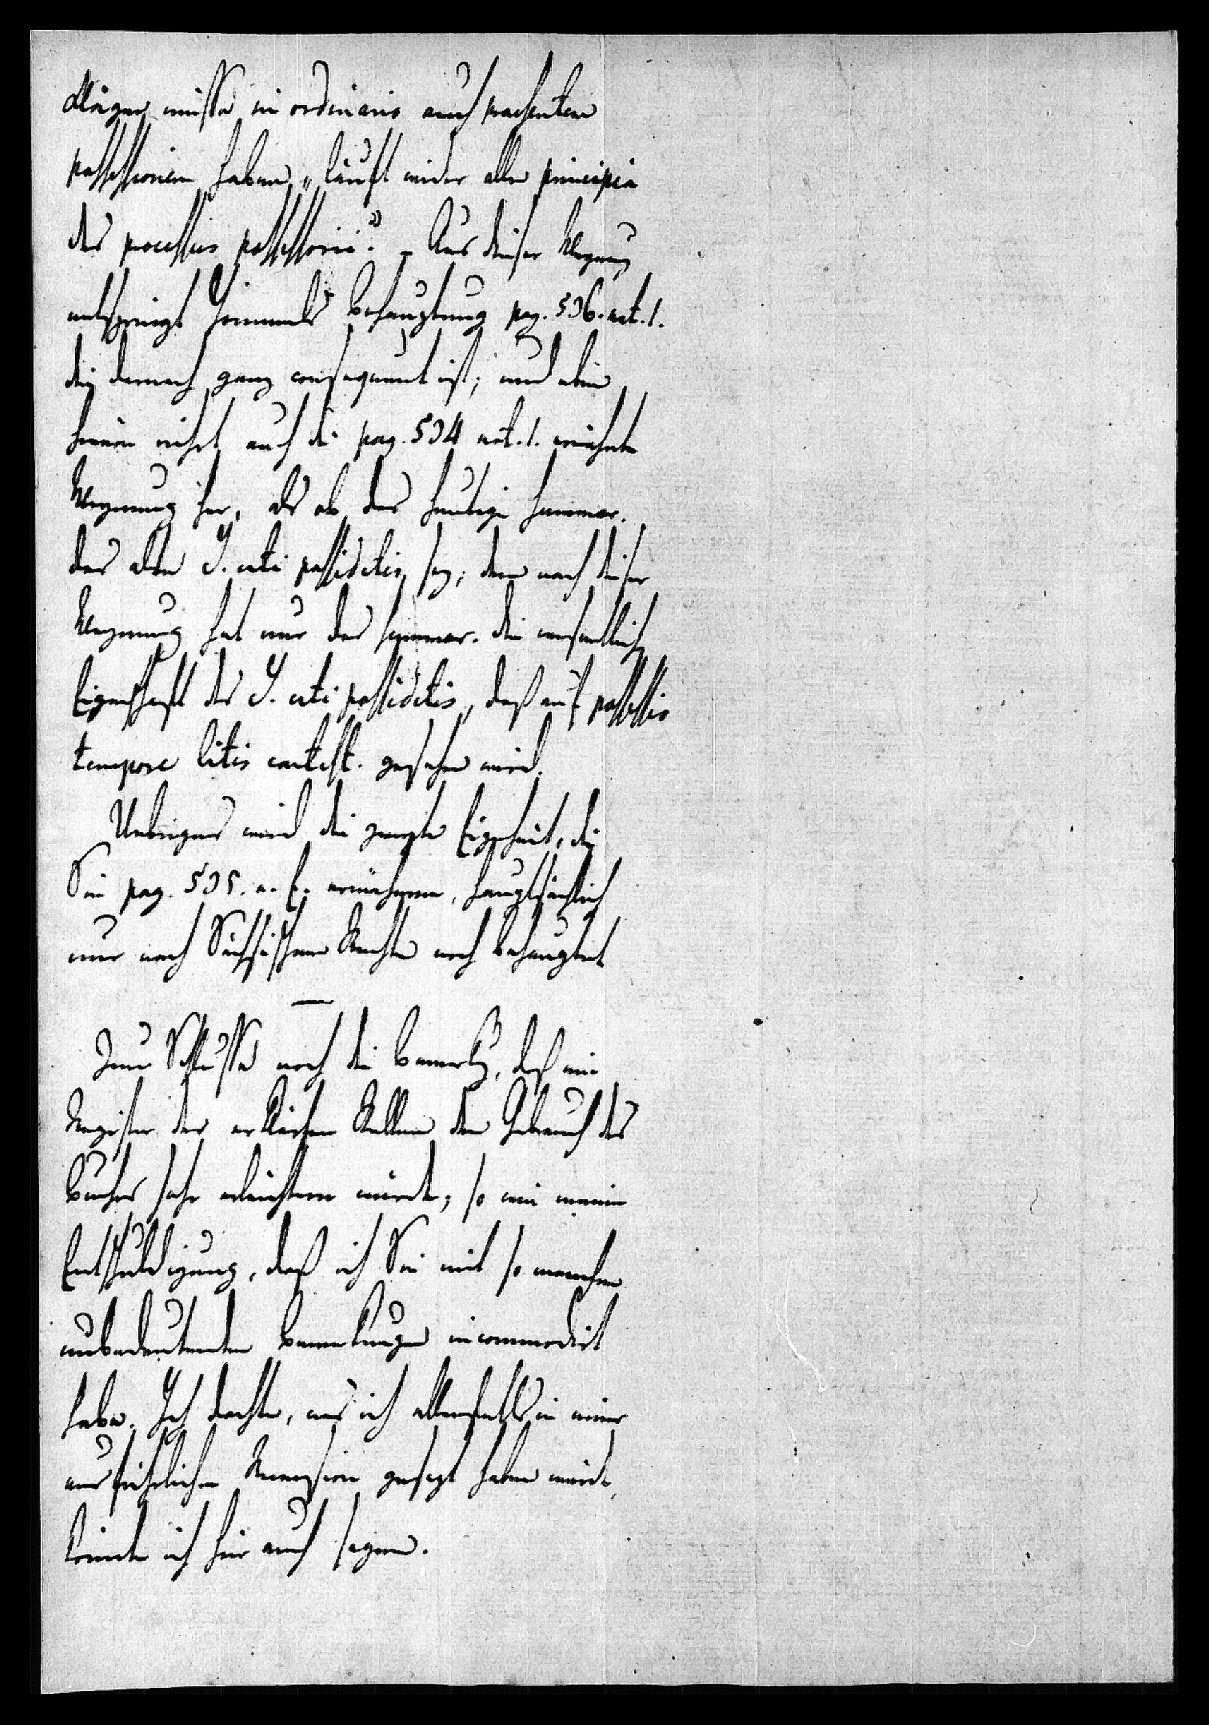 Kläger müsse in ordinario auch praesentem
possessionem haben, „läuft wider alle principia
des processus possessorii“. – Aus dieser Meynung
entspringt Hommels Behauptung pag. 536. not. 1.
die darnach ganz consequent ist; und eben
hierin rührt auch die pag. 534 not. 1. erwähnte
Meynung her, als ob das heutige summar.
das alte J. uti possidetis sey; denn nach dieser
Meynung hat nur das summar. die wesentliche
Eigenschaft des J. uti possidetis, daß auf possessio
tempore litis contest. gesehen wird.
Uebrigens wird die zweyte Eigenheit, die
Sie pag. 535. a. E. erwähnen, hauptsächlich
nur nach Sächsischem Rechte noch behauptet
—
Zum Schlusse noch die Bemerkg, daß ein
Register der erklärten Stellen den Gebrauch des
Buches sehr erleichtern würde; so wie meine
Entschuldigung, daß ich Sie mit so manchen
unbedeutenden Bemerkungen incommodirt
habe. Ich dachte, was ich allenfalls in einer
ausführlichen Recension gesagt haben würde,
könnte ich hier auch sagen.